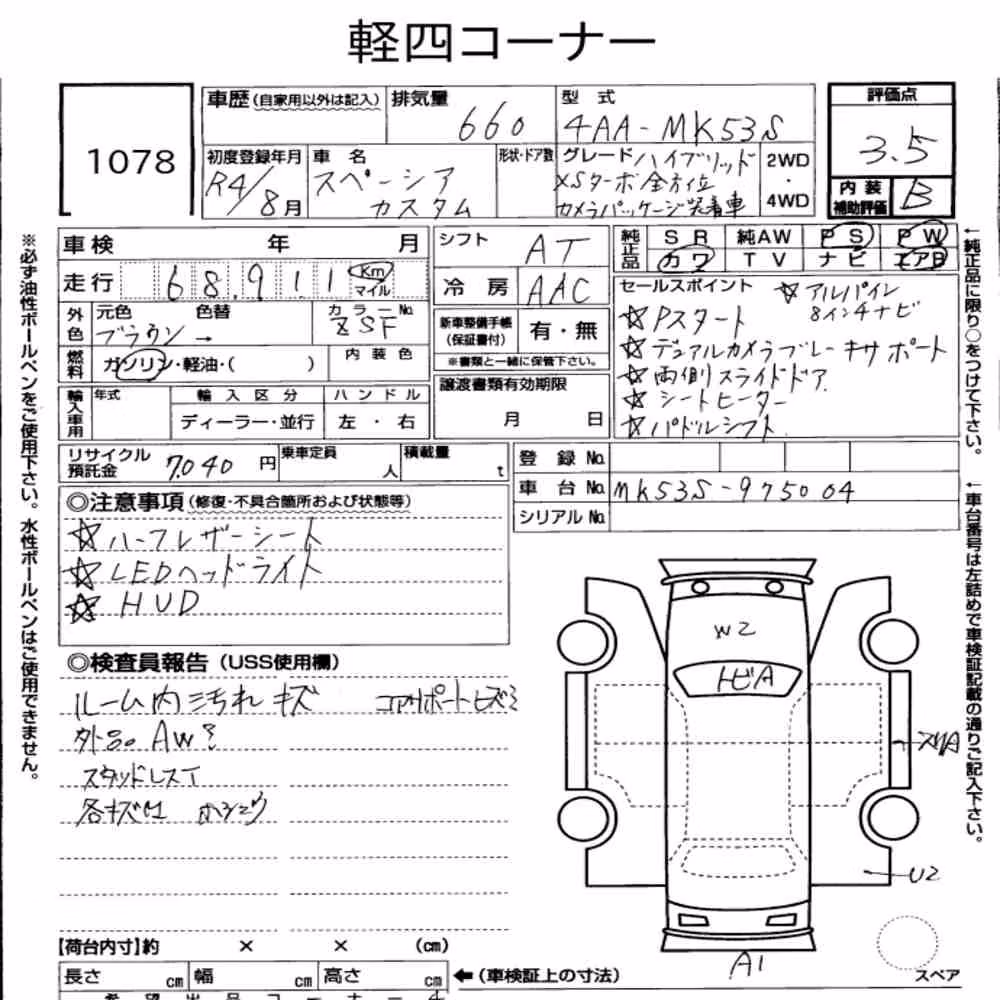 軽四コーナー
1078
車歴(自家用以外は記入)
排気量
660
型式
4AA-MK53S
評価点
3.5
内装
補助評価
B
初度登録年月
R4/8月
車名
スペーシア
カスタム
形状・ドア数
グレード ハイブリッド
XSターボ 全方位
カメラパッケージ装着車
2WD
・
4WD
※必ず油性ボールペンをご使用下さい。水性ボールペンはご使用できません。
車検 年 月
走行 68.911 Km
マイル
外色
元色
ブラウン →
色替
カラーNo
ZSF
燃料
ガソリン・軽油・( )
内装色
輸入車用
年式
輸入区分
ディーラー・並行
ハンドル
左・右
シフト AT
冷房 AAC
新車整備手帳
(保証書付)
有・無
※書類と一緒に保管下さい。
譲渡書類有効期限
月 日
純正品
SR 純AW PS PW
カワ TV ナビ エアB
セールスポイント ☆アルパイン
8インチナビ
☆Pスタート
☆デュアルカメラブレーキサポート
☆両側スライドドア
☆シートヒーター
☆パドルシフト
←純正品に限り○をつけて下さい。
リサイクル
預託金
7,040円
乗車定員
人
積載量
t
登録No.
車台No. MK53S-975004
シリアルNo.
←車台番号は左詰めで車検証記載の通りご記入下さい。
◎注意事項(修復・不具合箇所および状態等)
☆ハーフレザーシート
☆LEDヘッドライト
☆HUD
◎検査員報告(USS使用欄)
ルーム内 汚れ キズ コアサポートヒズミ
外品。AW
スタッドレスT
各キズ凹
W2
トビA
スリA
U2
A1
スペア
【荷台内寸】約 × × (cm)
長さ cm 幅 cm 高さ cm
←(車検証上の寸法)
希望出品コーナー